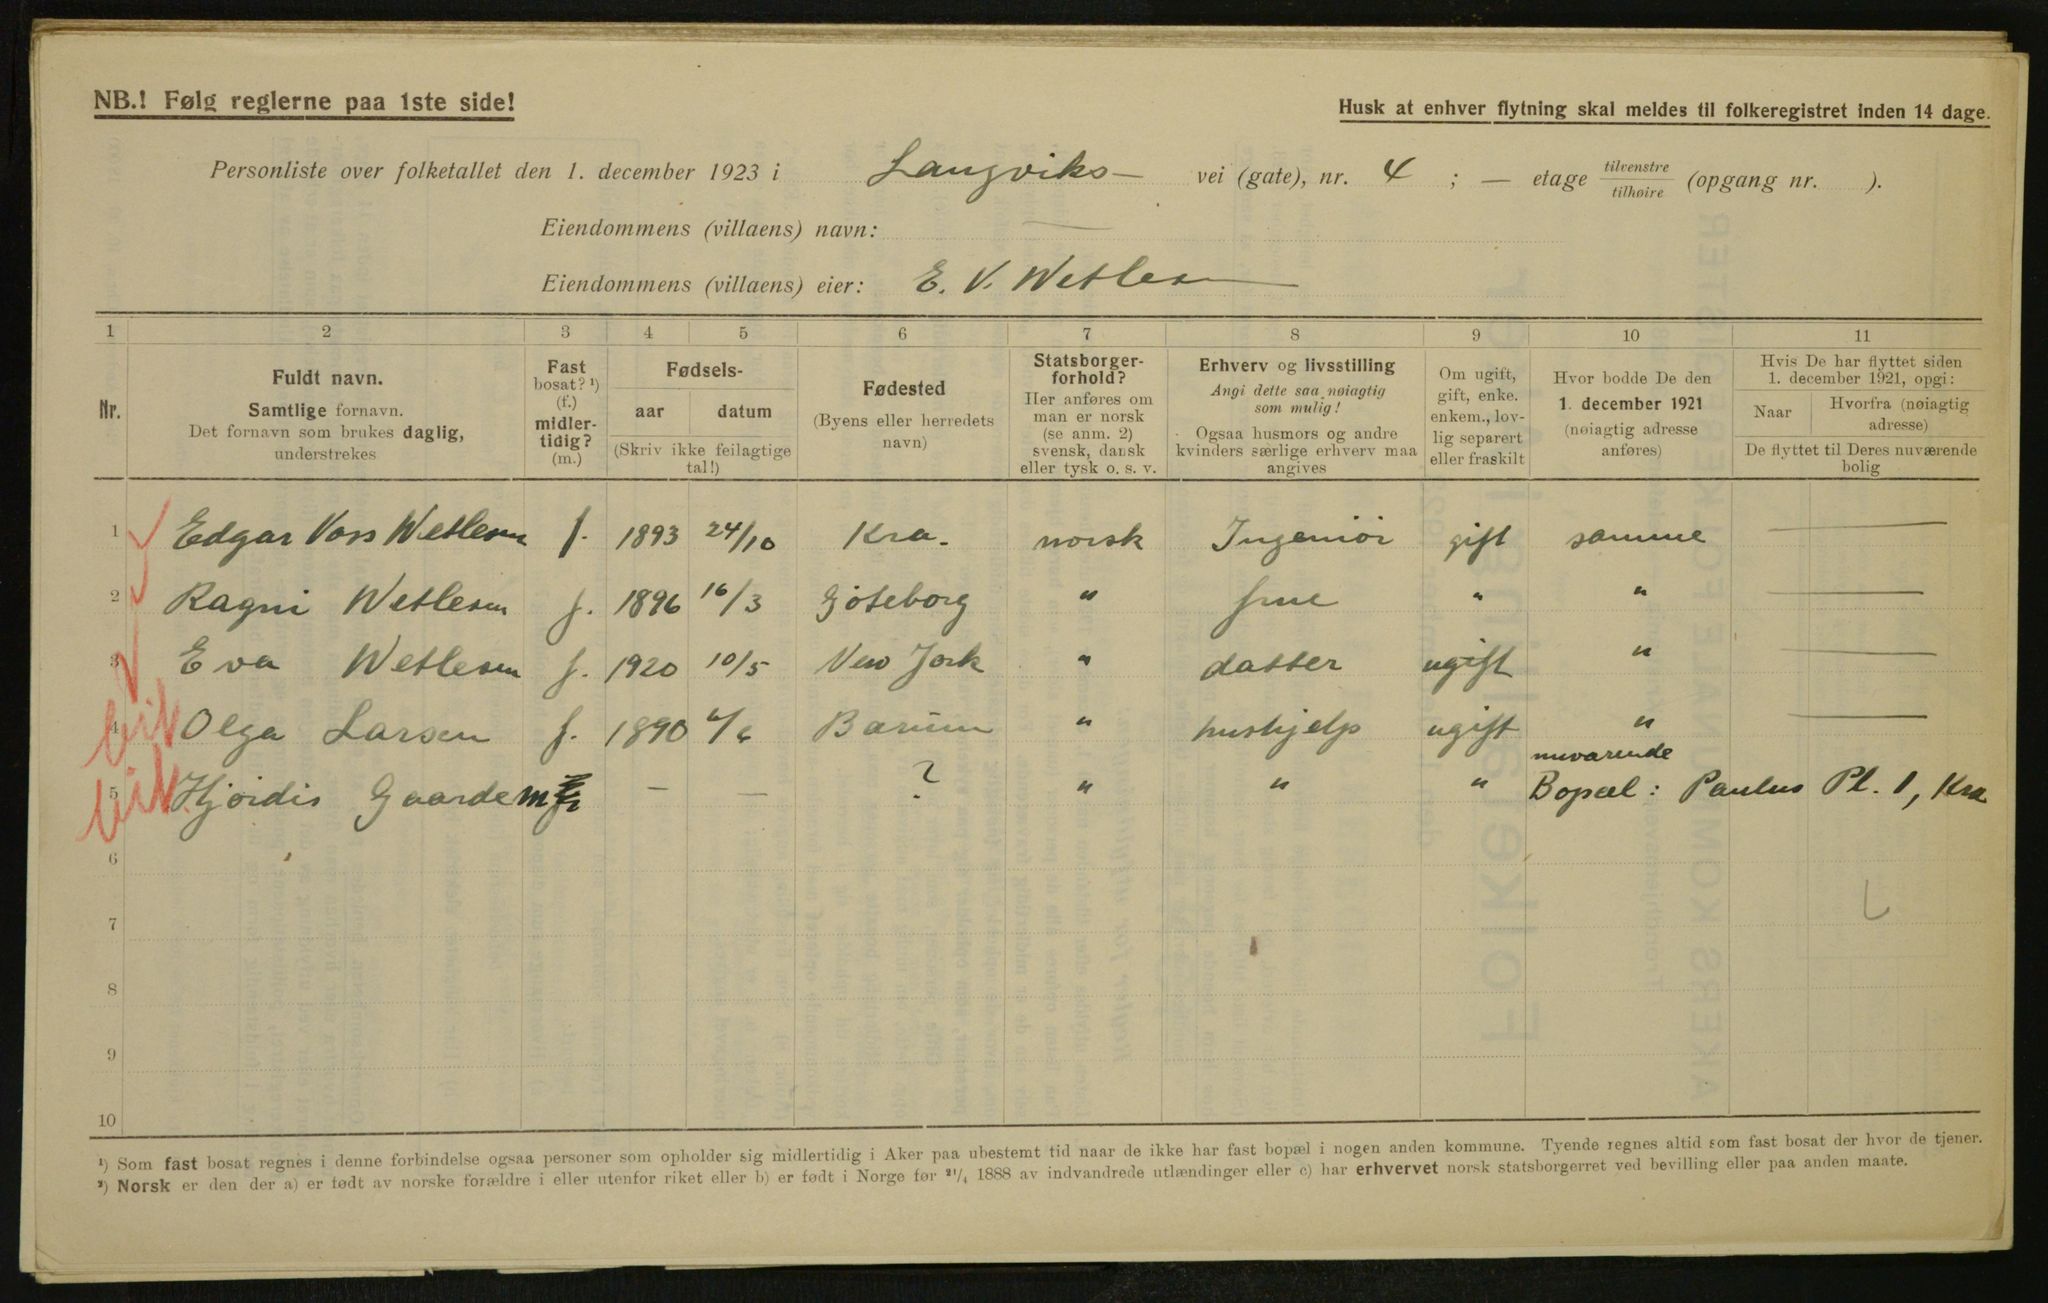 NB.! Følg reglerne paa 1ste side!
Husk at enhver flytning skal meldes til folkeregistret inden 14 dage.
Personliste over folketallet den 1. december 1923 i Langviks— vei (gate), nr. 4 ; — etage tilvenstre/tilhøire (opgang nr. ).
Eiendommens (villaens) navn: —
Eiendommens (villaens) eier: E. V. Wetlesen
1 2 3 4 5 6 7 8 9 10 11
Nr.
Fuldt navn.
Samtlige fornavn.
Det fornavn som brukes daglig,
understrekes
Fast
bosat? ¹)
(f.)
midler-
tidig?
(m.)
Fødsels-
aar datum
(Skriv ikke feilagtige
tal!)
Fødested
(Byens eller herredets
navn)
Statsborger-
forhold?
Her anføres om
man er norsk
(se anm. 2)
svensk, dansk
eller tysk o. s. v.
Erhverv og livsstilling
Angi dette saa nøiagtig
som mulig!
Ogsaa husmors og andre
kvinders særlige erhverv maa
angives
Om ugift,
gift, enke.
enkem., lov-
lig separert
eller fraskilt
Hvor bodde De den
1. december 1921
(nøiagtig adresse
anføres)
Hvis De har flyttet siden
1. december 1921, opgi:
Naar Hvorfra (nøiagtig
adresse)
De flyttet til Deres nuværende
bolig
1 Edgar Voss Wetlesen f. 1893 24/10 Kra. norsk Ingeniør gift samme —
2 Ragni Wetlesen f. 1896 16/3 Göteborg " frue " " —
3 Eva Wetlesen f. 1920 10/5 New York " datter ugift " —
4 Olga Larsen f. 1890 6/6 Bærum " hushjelp ugift " —
5 Hjørdis Gaarde m — — ? " " " nuværende
Bopæl: Paulus Pl. 1, Kra
6
7
8
9
10
¹) Som fast bosat regnes i denne forbindelse ogsaa personer som opholder sig midlertidig i Aker paa ubestemt tid naar de ikke har fast bopæl i nogen anden kommune. Tyende regnes altid som fast bosat der hvor de tjener.
²) Norsk er den der a) er født av norske forældre i eller utenfor riket eller b) er født i Norge før ²¹/₄ 1888 av indvandrede utlændinger eller c) har erhvervet norsk statsborgerret ved bevilling eller paa anden maate.